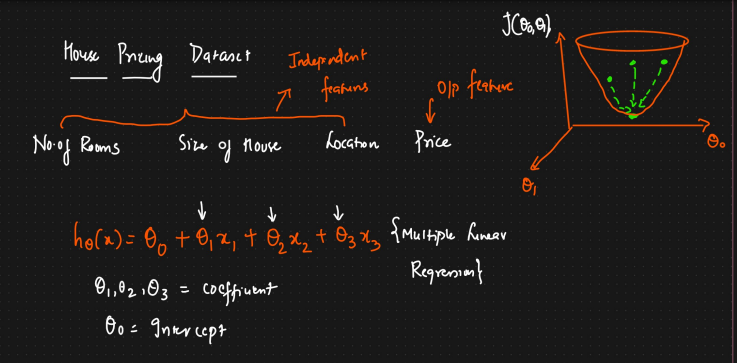 House Pricing Dataset
Independent
features
O/p feature
No. of Rooms Size of House Location Price
J(θ₀,θ₁)
θ₀
θ₁
hθ(x) = θ₀ + θ₁x₁ + θ₂x₂ + θ₃x₃ {Multiple Linear
Regression}
θ₁,θ₂,θ₃ = coefficient
θ₀ = Intercept